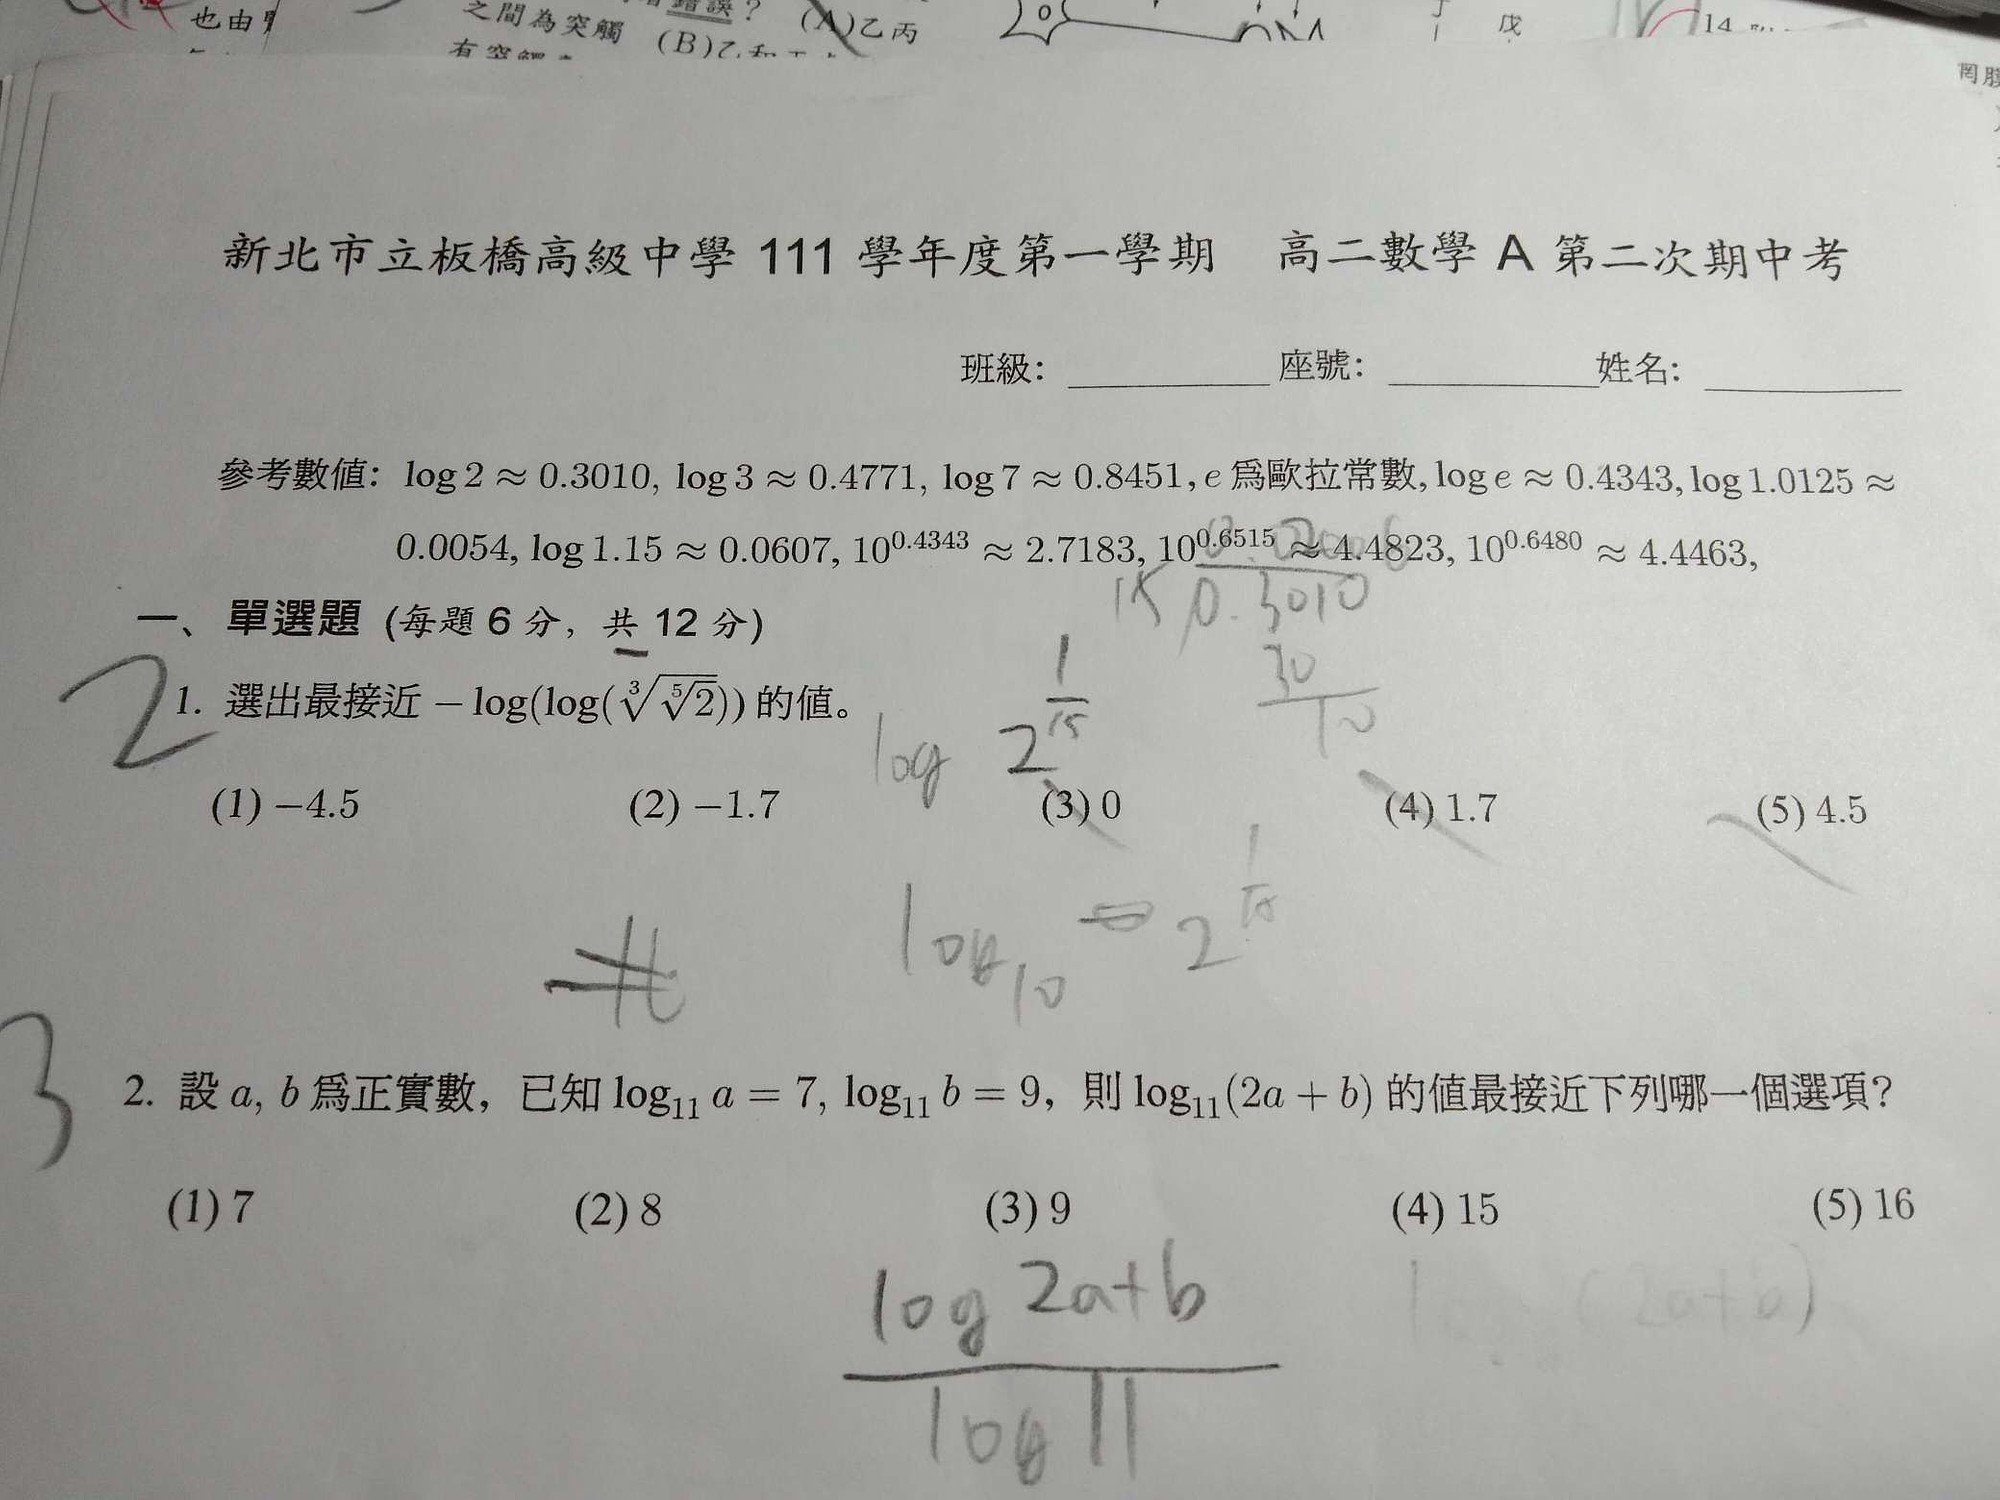 也由
之間為突觸
錯誤?
(A)乙丙
(B)乙和
戊
14
新北市立板橋高級中學 111 學年度第一學期 高二數學 A 第二次期中考
班級: 座號: 姓名:
參考數值: log 2 ≈ 0.3010, log 3 ≈ 0.4771, log 7 ≈ 0.8451, e 爲歐拉常數, log e ≈ 0.4343, log 1.0125 ≈
0.0054, log 1.15 ≈ 0.0607, 10^0.4343 ≈ 2.7183, 10^0.6515 ≈ 4.4823, 10^0.6480 ≈ 4.4463,
15 0.3010
30
10
一、單選題 (每題 6 分, 共 12 分)
2
1. 選出最接近 − log(log(∛(⁵√2))) 的值。
log 2^(1/15)
(1) −4.5 (2) −1.7 (3) 0 (4) 1.7 (5) 4.5
log₁₀ = 2^(1/15)
3
2. 設 a, b 爲正實數, 已知 log₁₁ a = 7, log₁₁ b = 9, 則 log₁₁(2a + b) 的值最接近下列哪一個選項?
(1) 7 (2) 8 (3) 9 (4) 15 (5) 16
log 2a+b
log 11
(2a+b)